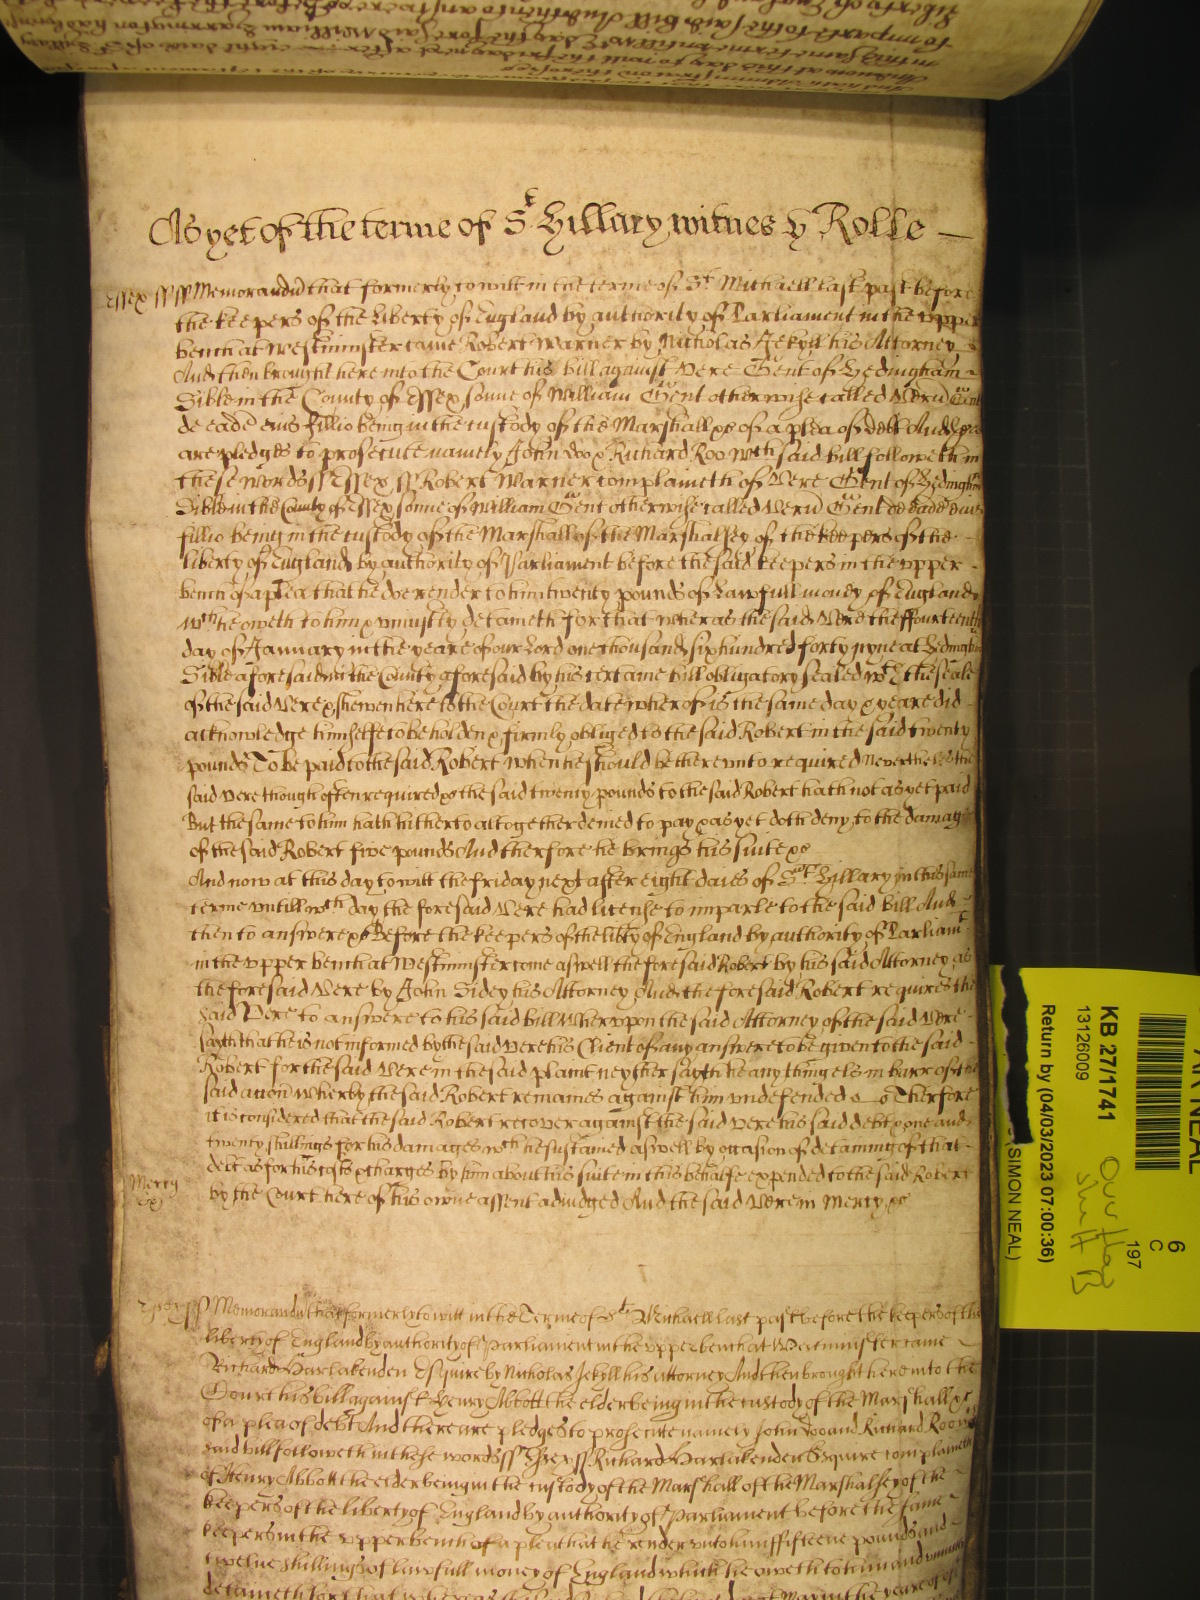 As yet of the terme of St Hillary witnes H Rolle
Essex ss ss Memorandu that formerly to witt in the terme of St Michaell last past before
the keepers of the Liberty of England by authority of Parliament in the vpper
bench at Westminster came Robert Warner by Nicholas Jekyll his Attorney
And then brought here into the Court his bill against Vere Gent of Hedingham
Sible in the County of Essex sonne of William Gent otherwise called Veru Gent
de eade eius fillio being in the custody of the Marshall &c of a plea of debt And there
are pledges to prosecute namely John Doo & Richard Roo wch said bill followeth in
these words ss Essex ss Robert Warner complaineth of Vere Gent of Hedingham
Sible in the County of Essex sonne of William Gent otherwise called Veru Gent de eade eius
fillio being in the custody of the Marshall of the Marshalsey of the keepers of the
liberty of England by authority of Parliament before the said keepers in the vpper
bench of a plea that he doe render to him twenty pounds of Lawfull money of England
wch he oweth to him & vniustly detaineth for that wheras the said Vere the ffourteenth
day of January in the yeare of our Lord one thousand six hundred forty nyne at Hedingham
Sible aforesaid in the County aforesaid by his certaine bill obligatory sealed wth the seale
of the said Vere & shewen here to the Court the date wherof is the same day & yeare did
acknowledge himselfe to be holden & firmly obliged to the said Robert in the said twenty
pounds To be paid to the said Robert when he should be therevnto required Neverthelesse the
said Vere though often required &c the said twenty pounds to the said Robert hath not as yet paid
But the same to him hath hitherto altogether denied to pay & as yet doth deny to the damage
of the said Robert five pounds And therfore he brings his suite &c
And now at this day to witt the friday next after eight daies of St Hillary in this same
terme vntill wch day the foresaid Vere had license to imparle to the said bill And
then to answere &c Before the keepers of the libty of England by authority of Parliamt
in the vpper bench at Westminster come aswell the foresaid Robert by his said Attorney as
the foresaid Vere by John Sidey his Attorney And the foresaid Robert requires the
said Vere to answere to his said bill Wherevpon the said Attorney of the said Vere
sayth that he is not informed by the said Vere his Client of any answere to be given to the said
Robert for the said Vere in the said plaint neyther sayth he any thing els in barr of the
said action Wherby the said Robert remaines against him vndefended Therfore
it is considered that the said Robert recover against the said Vere his said debt & one and
twenty shillings for his damages wch he sustained aswell by occasion of detaining of that
debt as for his costs & charges by him about his suite in this behalfe expended to the said Robert
Mercy
by the Court here of his owne assent adiudged And the said Vere in Mercy &c
ss Memorandu that formerly to witt in the Terme of St Michaell last past before the keepers of the
liberty of England by authority of Parliament in the vpper bench at Westminster came
Richard Harlakenden Esquire by Nicholas Jekyll his Attorney And then brought here into the
Court his bill against Henry Abbott the elder being in the custody of the Marshall &c
of a plea of debt And there are pledges to prosecute namely John Doo and Richard Roo wch
said bill followeth in these words ss Essex ss Richard Harlakenden Esquire complaineth
of Henry Abbott the elder being in the custody of the Marshall of the Marshalsey of the
keepers of the liberty of England by authority of Parliament before the same
keepers in the vpper bench of a plea that he render vnto him ffifteene pounds and
twelve shillings of lawfull money of England which he oweth to him and vniustly
detaineth for that
KB 27/1741
13126009
Return by (04/03/2023 07:00:36)
(SIMON NEAL)
6
C
197